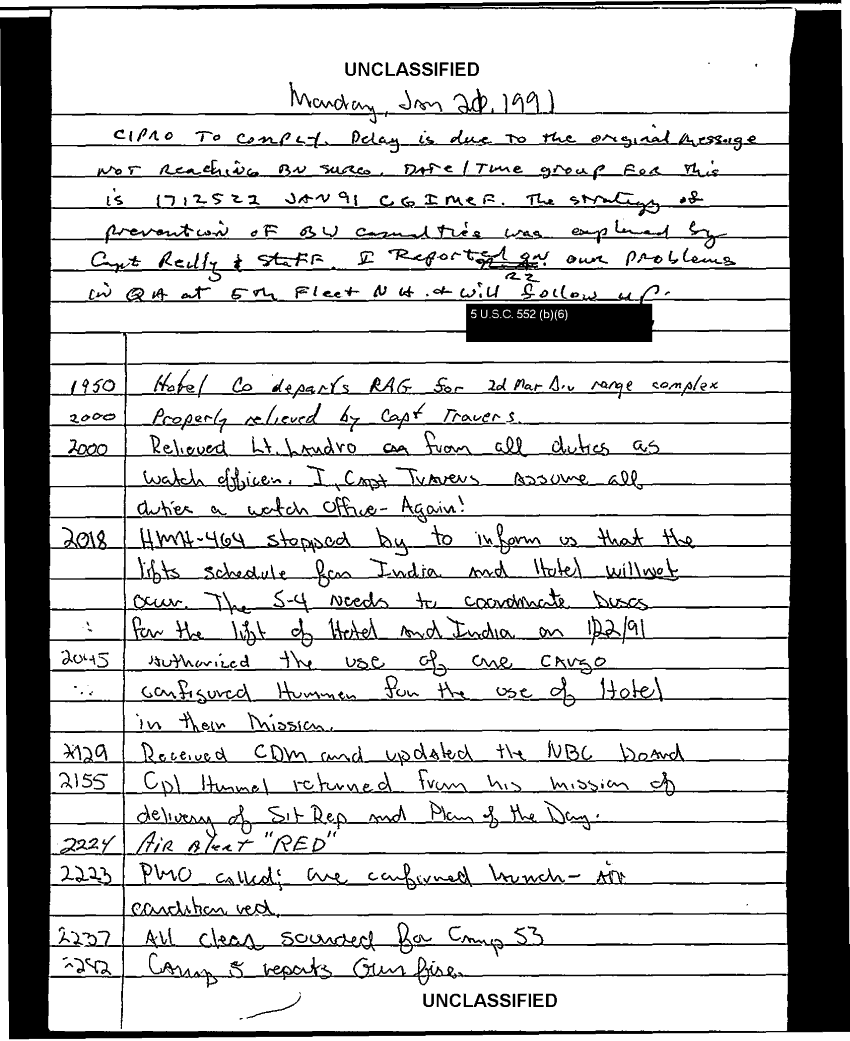 UNCLASSIFIED
Monday, Jan 21, 1991
CIPRO TO COMPLY. Delay is due to the original message
NOT Reaching BN SURG. DATE/TIME group FOR this
is 171252Z JAN 91 CG I MEF. The strategy of
prevention OF BW casualties was explained by
Capt Reilly & STAFF. I Reported on our problems
in QA at 5th Fleet N H. & will follow up.
5 U.S.C. 552 (b)(6)
1950 Hotel Co departs RAG for 2d Mar Div range complex
2000 Properly relieved by Capt Travers.
2000 Relieved Lt. Landro from all duties as
watch officer. I, Capt Travers Assume all
duties a watch office - Again!
2018 HMH-464 stopped by to inform us that the
lifts schedule for India and Hotel will not
occur. The S-4 Needs to coordinate buses
for the lift of Hotel and India on 1/22/91
2045 Authorized the use of one CARGO
configured Hummer for the use of Hotel
in their Mission.
2129 Received CDM and updated the NBC board
2155 Cpl Hummel returned from his mission of
delivery of Sit Rep and Plan of the Day.
2224 AIR Alert "RED"
2223 PMO called; one confirmed launch - AIR
condition red.
2237 All clear sounded for Camp 53
2242 Camp 5 reports Gun fire.
UNCLASSIFIED